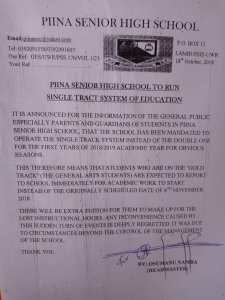 PIINA SENIOR HIGH SCHOOL
P.O. BOX 12
LAMBUSSIE-UWR
18th October, 2018
Your Ref
PIINA SENIOR HIGH SCHOOL TO RUN
SINGLE TRACT SYSTEM OF EDUCATION
IT IS ANNOUNCED FOR THE INFORMATION OF THE GENERAL PUBLIC
ESPECIALLY PARENTS AND GUARDIANS OF STUDENTS IN PIINA
SENIOR HIGH SCHOOL, THAT THE SCHOOL HAS BEEN MANDATED TO
OPERATE THE SINGLE TRACK SYSTEM INSTEAD OF THE DOUBLE ONE
FOR THE FIRST YEARS OF 2018/2019 ACADEMIC YEAR FOR OBVIOUS
REASONS.
THIS THEREFORE MEANS THAT STUDENTS WHO ARE ON THE 'GOLD
TRACK' (THE GENERAL ARTS STUDENTS) ARE EXPECTED TO REPORT
TO SCHOOL IMMEDIATELY FOR ACADEMIC WORK TO START
INSTEAD OF THE ORIGINALLY SCHEDULED DATE OF NOVEMBER
2018.
THERE WILL BE EXTRA TUITION FOR THEM TO MAKE UP FOR THE
LOST INSTRUCTIONAL HOURS. ANY INCONVENIENCE CAUSED BY
THIS SUDDEN TURN OF EVENTS IS DEEPLY REGRETTED. IT WAS DUE
TO CIRCUMSTANCES BEYOND THE CONTROL OF THE MANAGEMENT
OF THE SCHOOL.
THANK YOU.
(HEADMASTER)